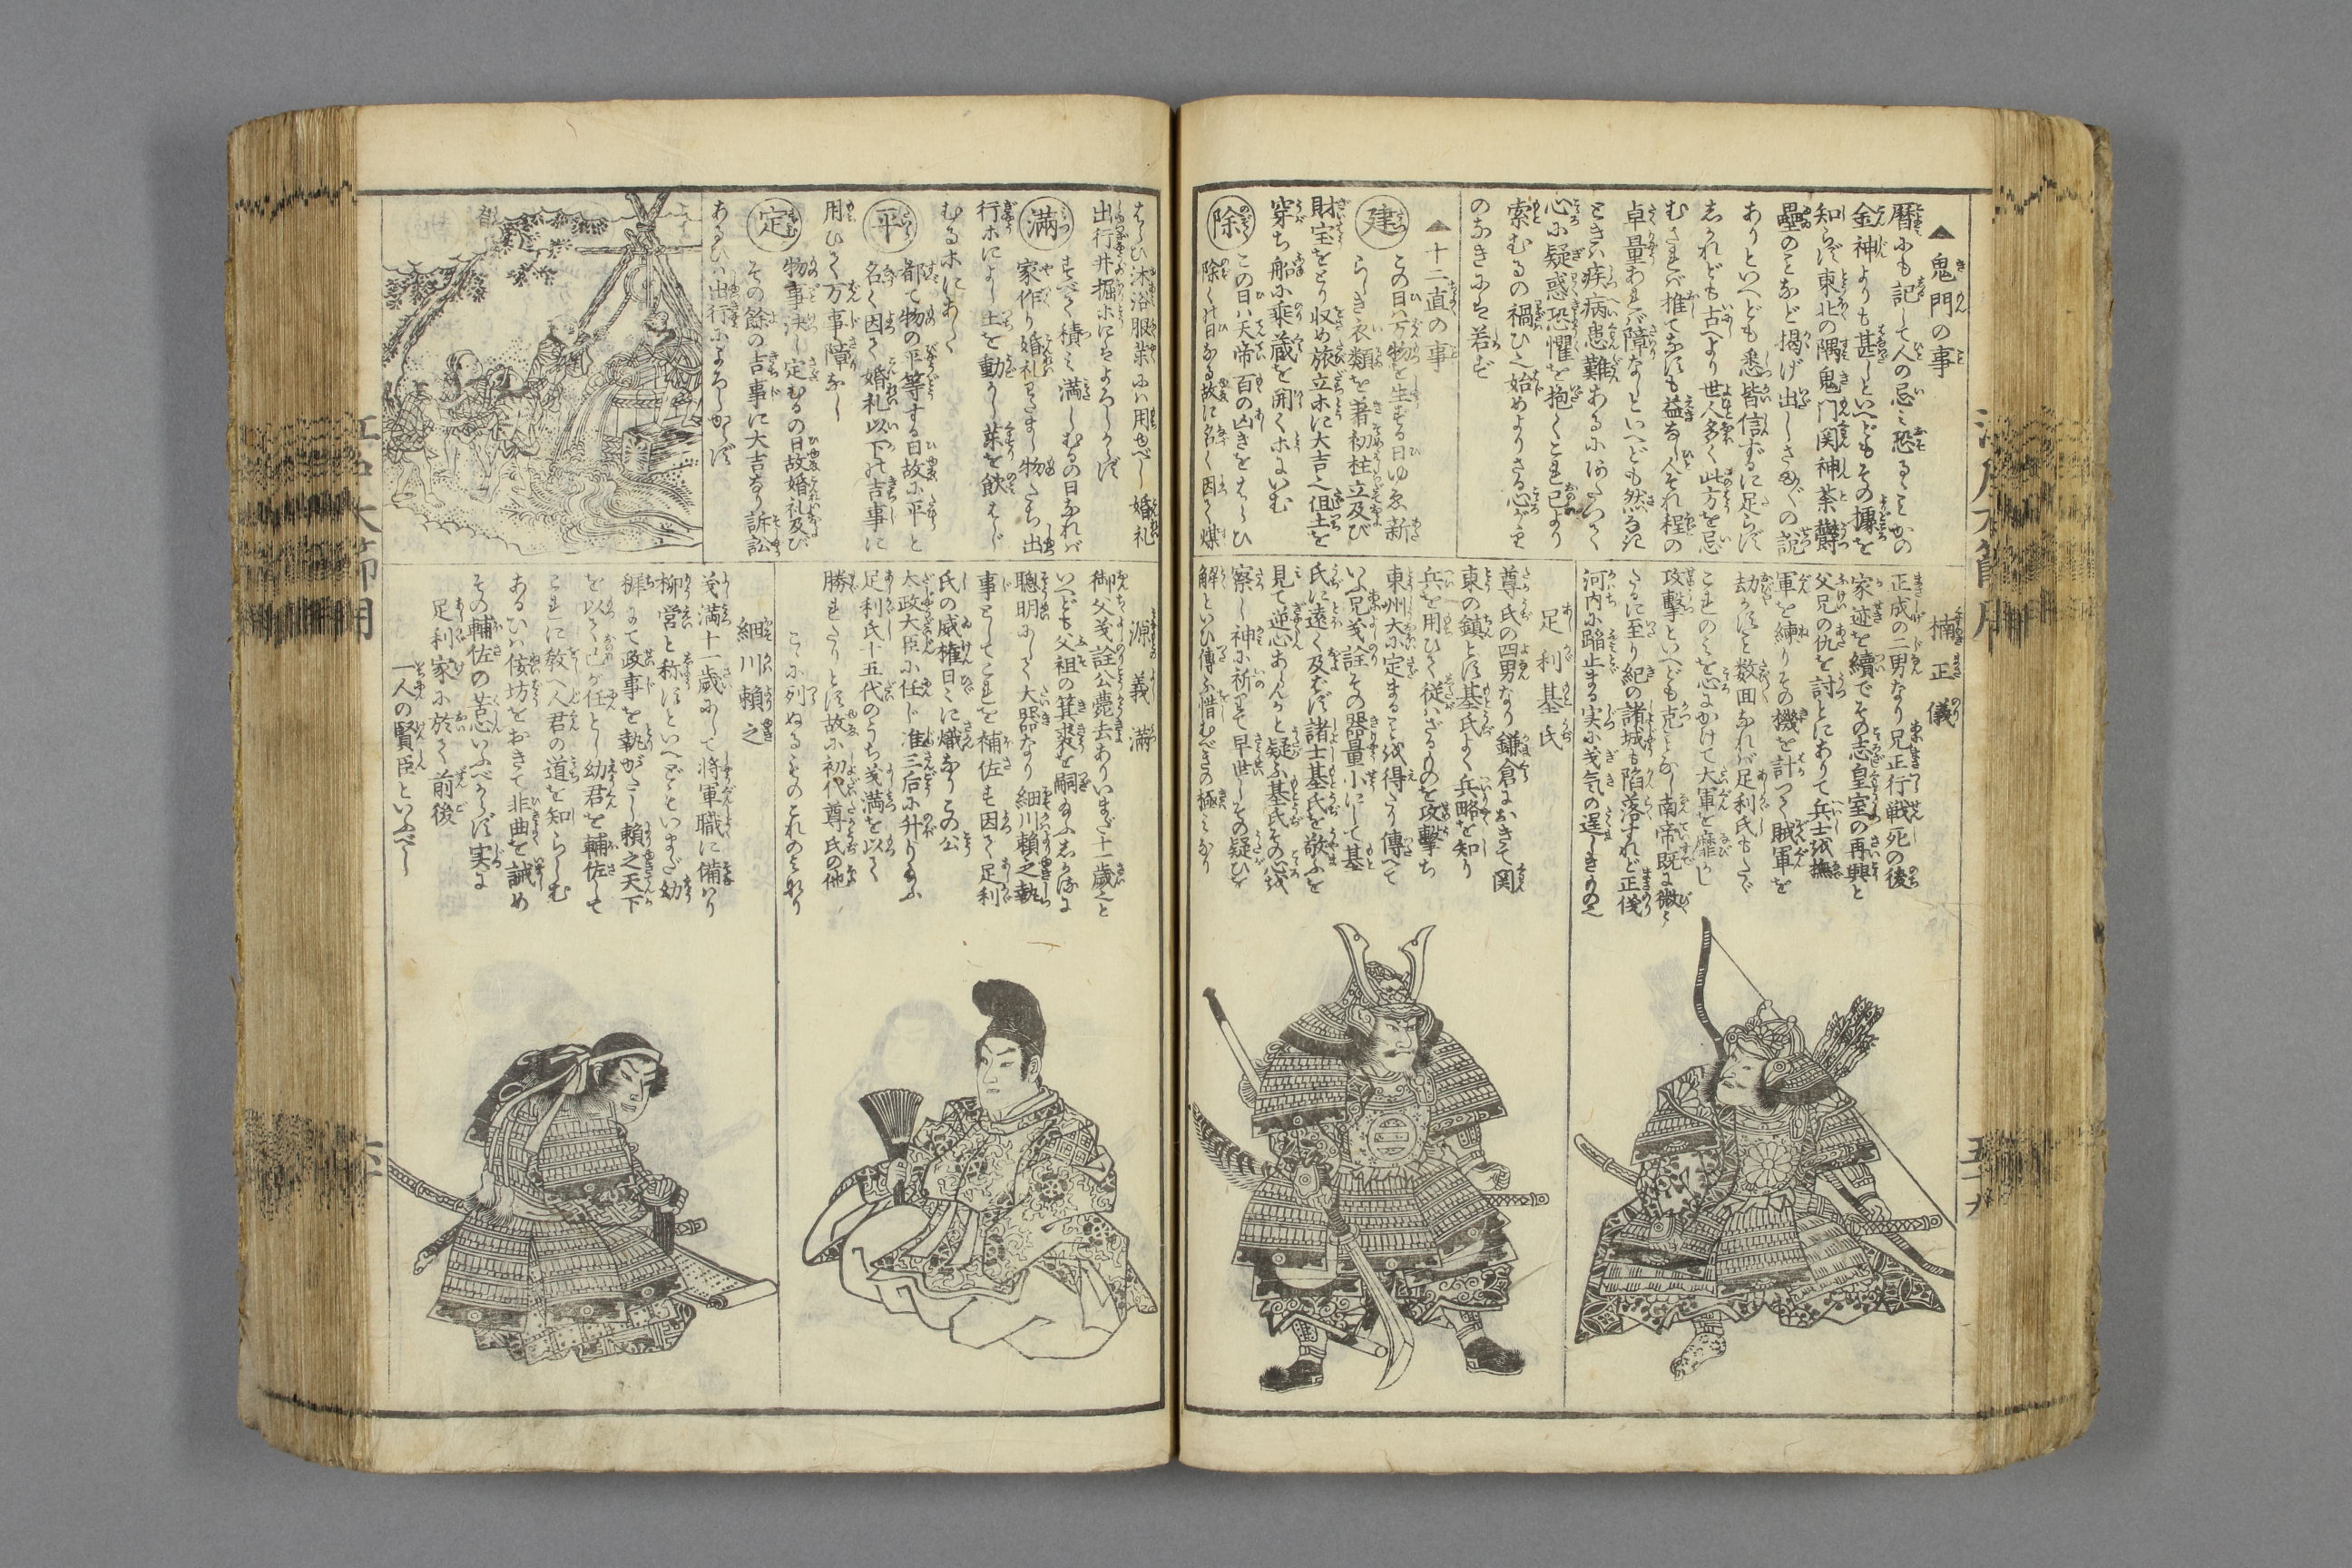 ▲鬼門の事
暦にも記して人の忌ミ恐るゝこかの
金神よりも甚しといへどもその據を
知らず東北の隅鬼門関神荼欝
壘のことなど揭げ出しさま〴〵の説
ありといへども悉皆信ずるに足らず
しかれども古へより世人多く此方を忌
むされバ推てなすも益なし人それ程の
卓量あれバ障なしといへども然るに
ときハ疾病患難あるにいたつて
心に疑惑恐懼を抱くこれ己より
索むるの禍ひ之始めよりさる心がけ
のなきにハ若ず
▲十二直の事
建 この日ハ万物を生ずる日ゆゑ新
らしき衣類を著初柱立及び
財宝をとり収め旅立ホに大吉但土を
穿ち船に乗蔵を開くホにいむ
除 この日ハ天帝百の凶きをはらひ
除くの日なる故に名く因て煤
はらひ沐浴服薬にハ用ゆべし婚礼
出行井掘ホにはよろしからず
満 すべて積ミ満しむるの日なれバ
家作り婚礼わたまし物たち出
行ホによし土を動かし薬を飲はじ
むるホにあしく
平 都て物の平等する日故に平と
名く因て婚礼以下の吉事に
用ひて万事障なし
定 物事決し定むるの日故婚礼及び
その餘の吉事に大吉なり訴訟
あるひハ出行によろしからず
楠正儀
正成の二男なり兄正行戦死の後
家迹を續でその志皇室の再興と
父兄の仇を討とにありて兵士を撫
軍を練りその機を計つて賊軍を
劫かすこと数面なれバ足利氏もたゞ
これのミを心にかけて大軍を靡かし
攻撃といへども克ことなし南帝既に微〻
たるに至り紀の諸城も陥落すれど正儀
河内に蹈止まる実に義気の逞しきもの之
足利基氏
尊氏の四男なり鎌倉におきて関
東の鎮とす基氏よく兵略を知り
兵を用ひて従ハざるものを攻撃ち
東州大に定まること を得たり傳へて
いふ兄義詮その器量小にして基
氏に遠く及ばず諸士基氏を敬ふを
見て逆心あらんかと疑ふ基氏その心を
察し神に祈りて早世しその疑ひを
解といひ傳ふ惜むべきの極ミなり
源義満
御父義詮公薨去ありいまだ十一歳之と
いへども父祖の箕裘を嗣給ふしかるに
聰明にして大器なり細川賴之執
事としてこれを補佐す因て足利
氏の威権日〻に熾なりこの公
太政大臣に任じ准三后に升り給ふ
足利氏十五代のうち義満を以て
勝れたりとす故に初代尊氏の他
こゝに列ぬるものこれのミなり
細川賴之
義満十一歳にして将軍職に備ハり
柳営と称すといへどもいまだ幼
稚にて政事を執がたし賴之天下
を以て己が任とし幼君を輔佐して
これに教へ人君の道を知らしむ
あるひハ侫坊をおきて非曲を誡め
その輔佐の苦心いふべからず実に
足利家に於て前後
一人の賢臣といふべし